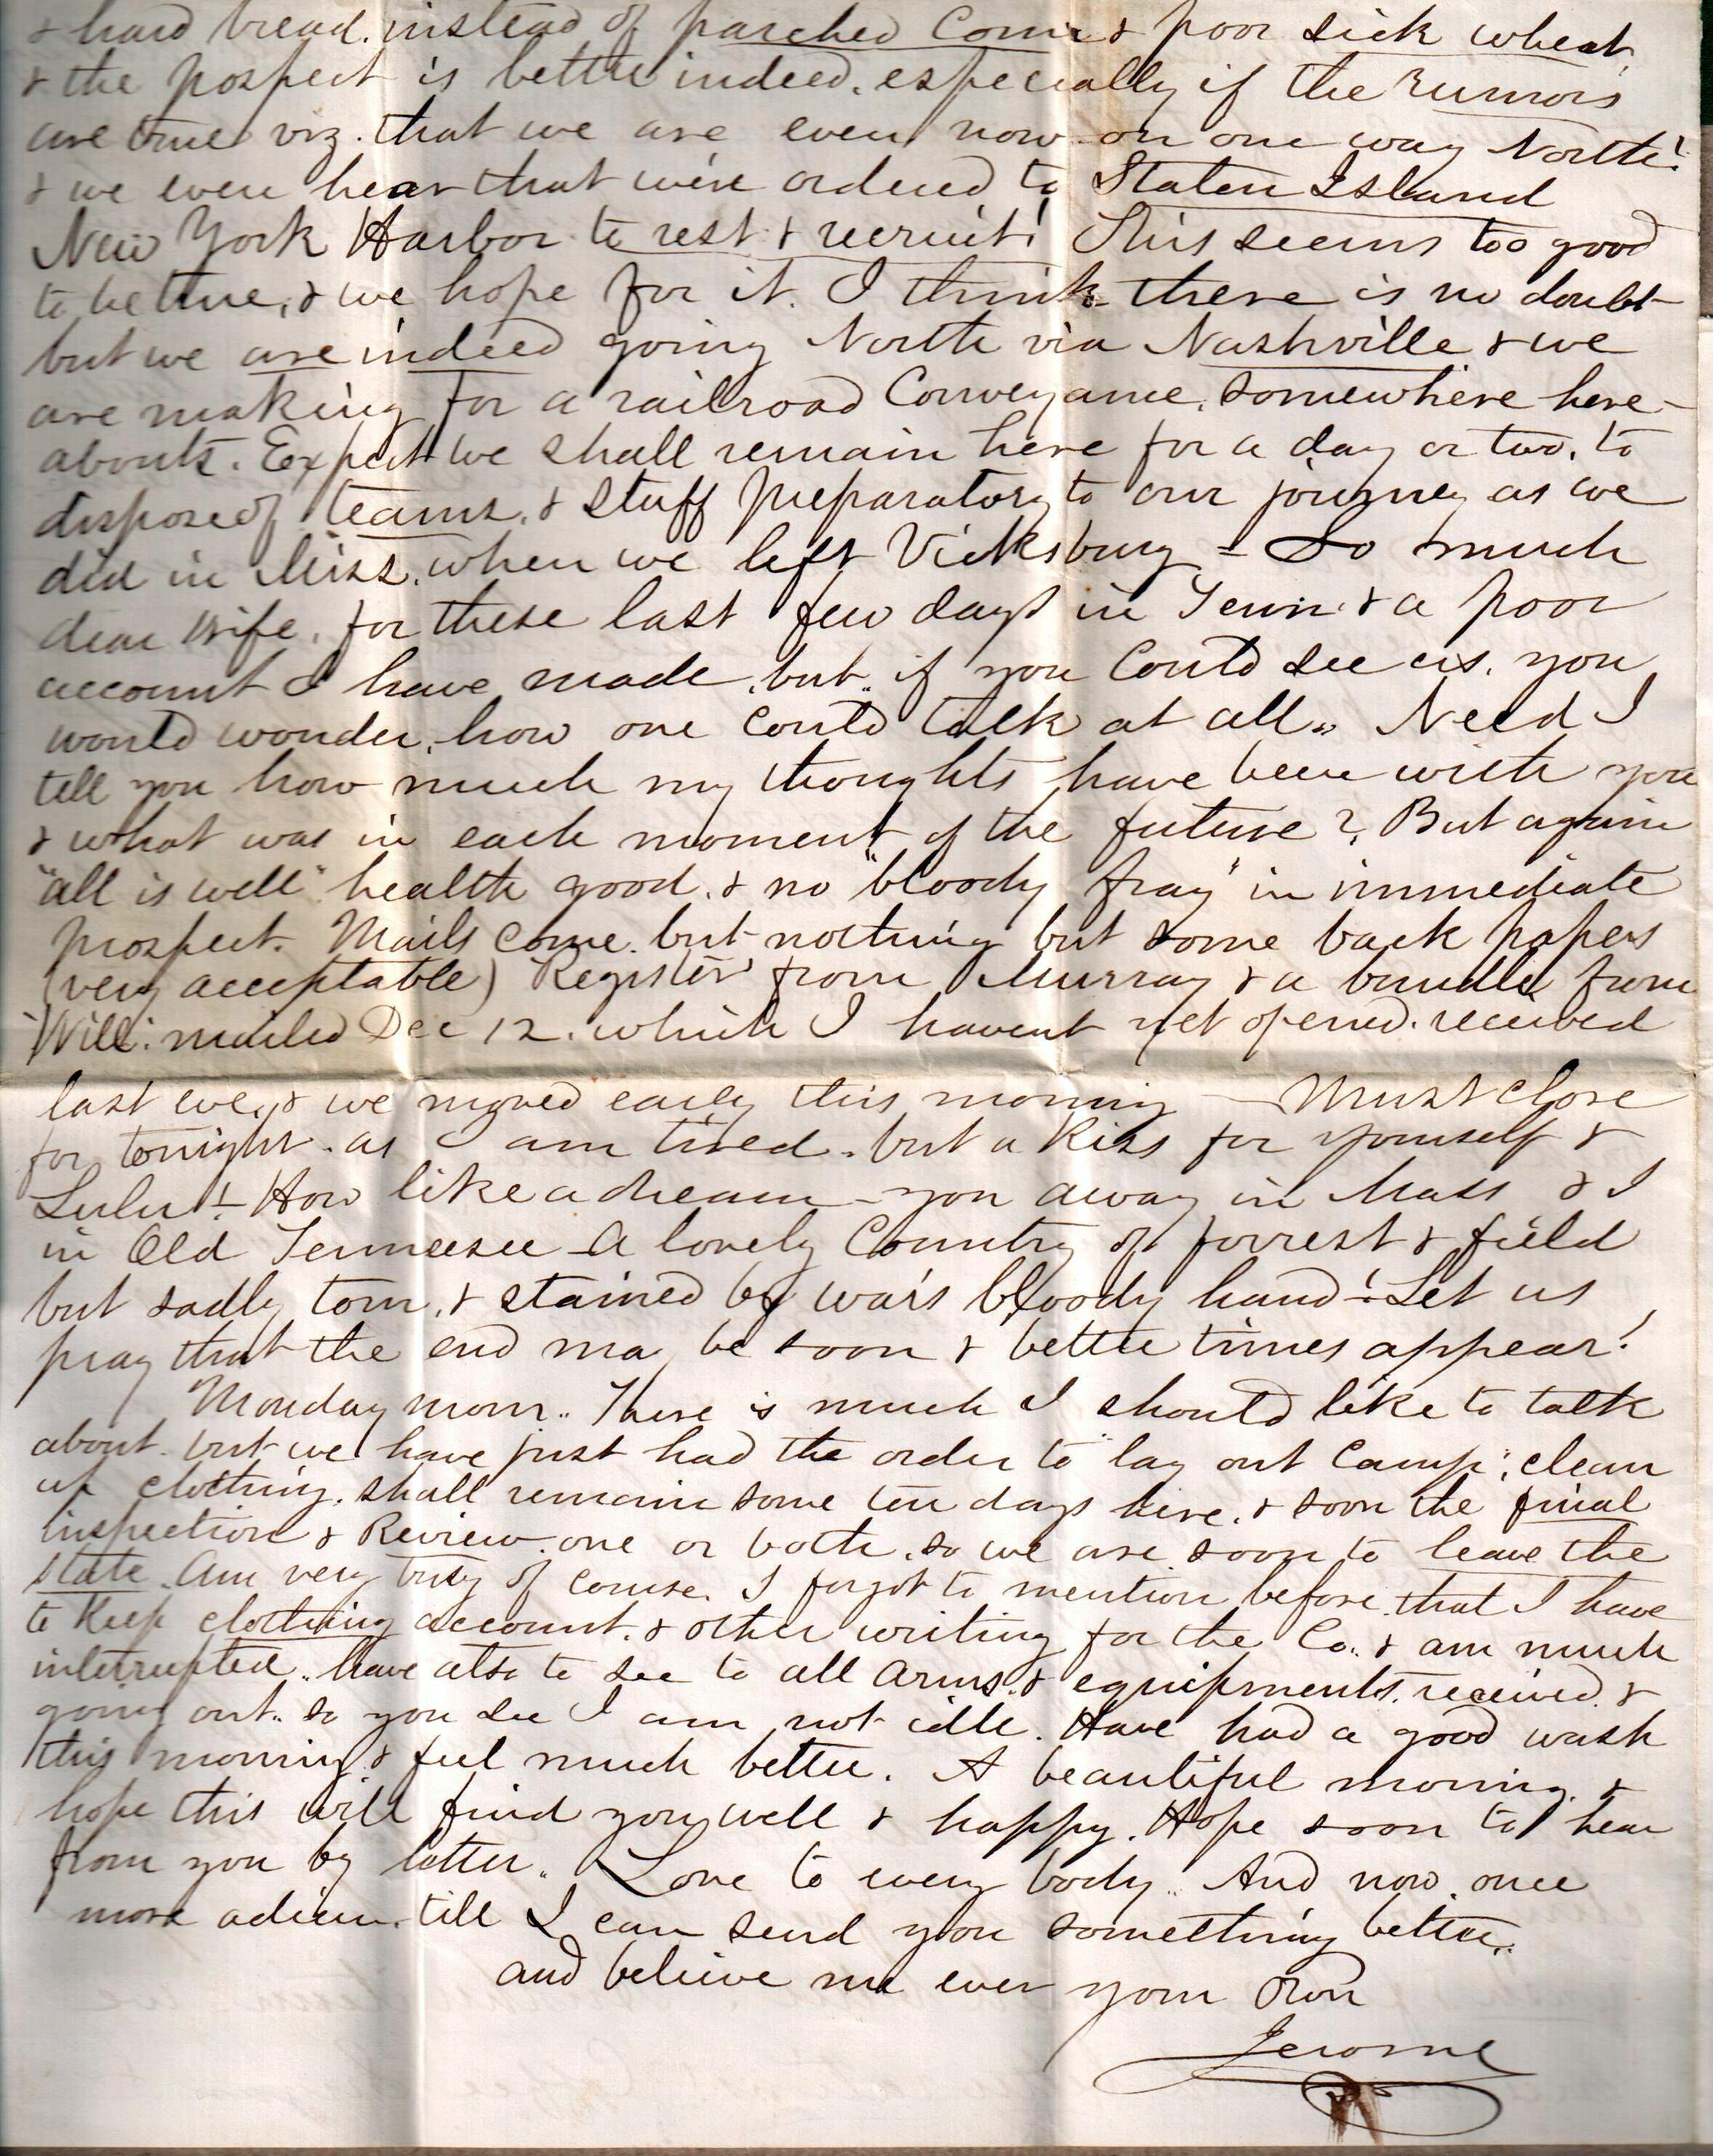 & hard bread. instead of parched Corn & poor sick wheat,
& the pospect is better indeed. especially if the rumors
are true viz. that we are even now on our way North!
& we even hear that we're ordered to Staten Island
New York Harbor to rest & recruit! This seems too good
to be true, & we hope for it. I think there is no doubt
but we are indeed going North via Nashville & we
are making for a railroad Conveyance, somewhere here-
abouts. Expect we shall remain here for a day or two, to
dispose of teams, & stuff preparatory to our journey as we
did in Miss. when we left Vicksburg - So much
dear Wife, for these last few days in Tenn. & a poor
account I have made, but if you Could see us, you
would wonder, how one Could talk at all. Need I
tell you how much my thoughts have been with you
& what was in each moment of the future? But again
"all is well" health good, & no "bloody fray" in immediate
prospect. Mails come. but nothing but some back papers
(very acceptable) Register from Murray & a bundle from
Will: mailed Dec 12. which I havent yet opened. received
last eve, & we moved early this morning — Must close
for tonight. as I am tired. but a Kiss for yourself &
Lulu! - How like a dream - you away in Mass & I
in Old Tennessee - A lovely Country of forrest & field
but sadly torn, & stained by war's bloody hand! Let us
pray that the end ma be soon & better times appear!
Monday morn.. There is much I should like to talk
about. but we have just had the order to "lay out Camp", clean
up clothing. shall remain some ten days here. & soon the final
inspection & Review. one or both. so we are soon to leave the
state. Am very busy of course. I forgot to mention before. that I have
to Keep clothing account. & other writing for the Co. & am much
interrupted.. have also to see to all arms. & equipments. received. &
going out.. so you see I am not idle. Have had a good wash
this morning. & feel much better. A beautiful morning. &
hope this will find you well & happy. Hope soon to hear
from you by letter. Love to every body.. And now. once
more adieu. till I can send you something better..
and believe me ever your own
Jerome